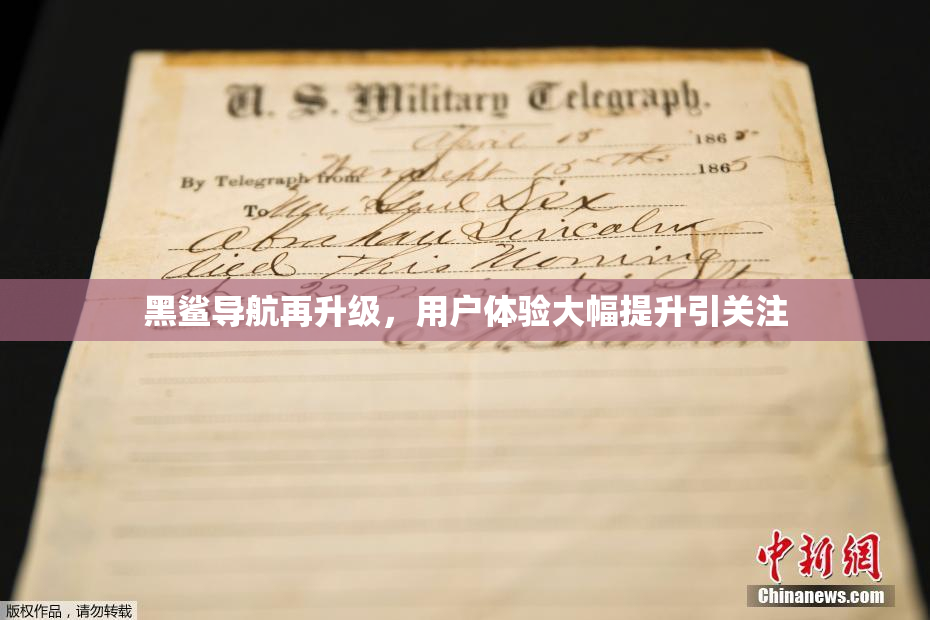 U. S. Military Telegraph.
April 15 1865
By Telegraph from War Dept 15th 1865
To Maj Genl Dix
Abraham Lincoln
died This Morning
22 minutes after
黑鲨导航再升级，用户体验大幅提升引关注
E. M. Stanton
中新网
Chinanews.com
版权作品，请勿转载